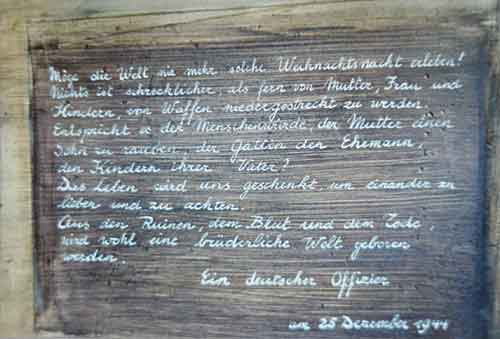 Möge die Welt nie mehr solche Weihnachtsnacht erleben!
Nichts ist schrecklicher, als fern von Mutter, Frau und
Kindern, von Waffen niedergestreckt zu werden.
Entspricht es der Menschenwürde, der Mutter einen
Sohn zu rauben, der Gattin den Ehemann,
den Kindern ihrer Vater?
Das Leben wird uns geschenkt, um einander zu
lieben und zu achten.
Aus den Ruinen, dem Blut und dem Tode,
wird wohl eine brüderliche Welt geboren
werden.
Ein deutscher Offizier
am 25 Dezember 1944